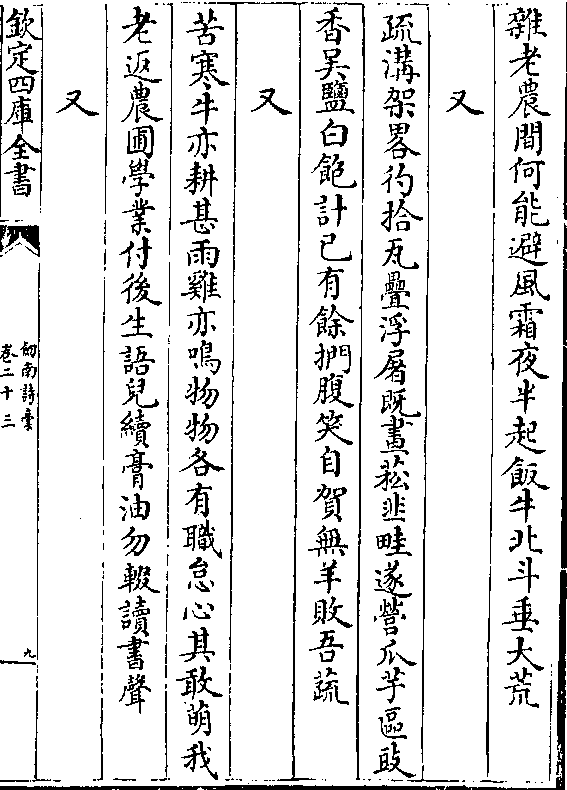 雜老農間何能避風霜夜半起飯牛北斗垂大荒
又
疏溝架畧彴拾瓦疊浮屠既畫菘韭畦遂營瓜芋區豉
香吳鹽白飽計已有餘捫腹笑自賀無羊敗吾蔬
又
苦寒牛亦耕甚雨雞亦鳴物物各有職怠心其敢萌我
老返農圃學業付後生語兒續膏油勿輟讀書聲
又
欽定四庫全書
劒南詩稾
卷二十三
九